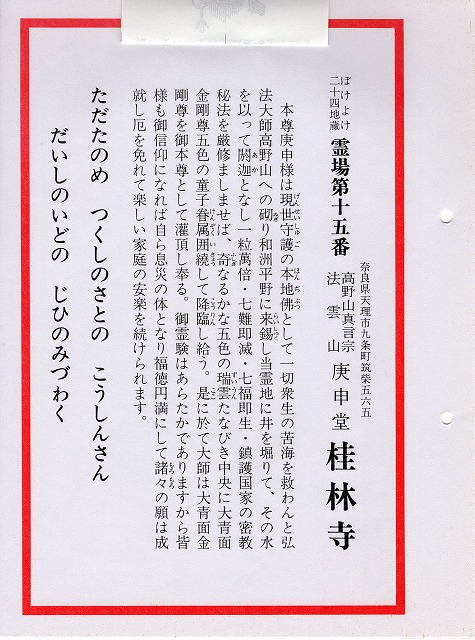 ぼけよけ
二十四地蔵 霊場第十五番
奈良県天理市九条町筑紫五六五
高野山真言宗
法雲山 庚申堂 桂林寺
本尊庚申様は現世守護の本地佛として一切衆生の苦海を救わんと弘
法大師高野山への砌り和洲平野に来錫し当霊地に井を堀りて、その水
を以って閼迦となし一粒萬倍・七難即滅・七福即生・鎮護国家の密教
秘法を厳修ましませば、奇なるかな五色の瑞雲たなびき中央に大青面
金剛尊五色の童子眷属囲繞して降臨し給う。是に於て大師は大青面金
剛尊を御本尊として灌頂し奉る。御霊験はあらたかでありますから皆
様も御信仰になれば自ら息災の体となり福徳円満にして諸々の願は成
就し厄を免れて楽しい家庭の安楽を続けられます。
ただたのめ つくしのさとの こうしんさん
だいしのいどの じひのみづわく